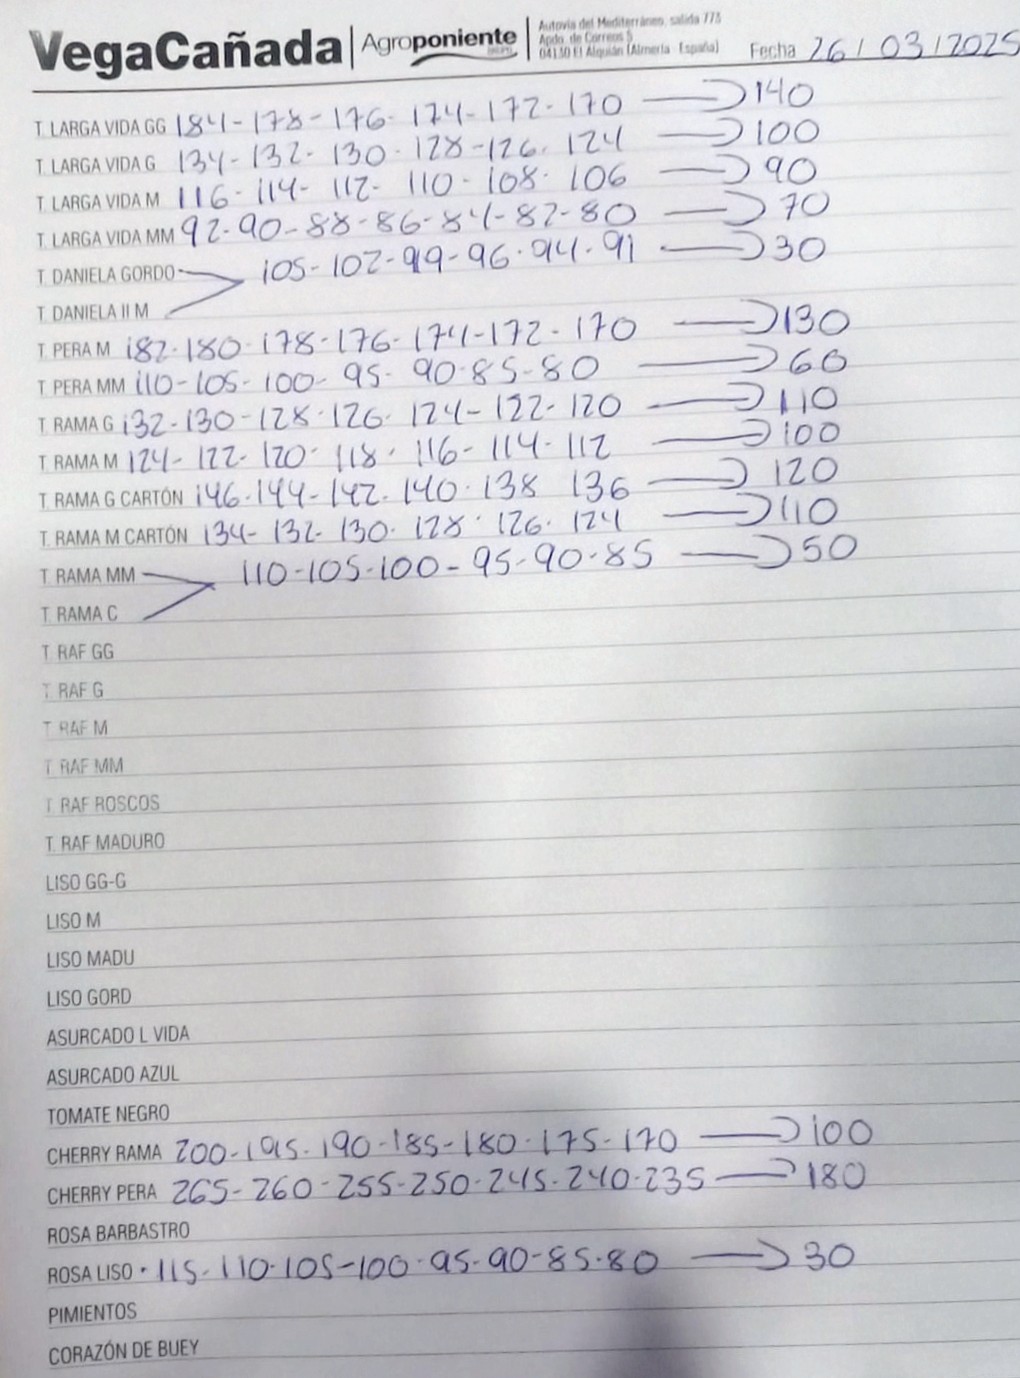 VegaCañada Agroponiente
Autovía del Mediterráneo, salida 773
Apdo. de Correos 5
04130 El Alquián (Almería - España)
Fecha 26/03/2025
T. LARGA VIDA GG 184-178-176-174-172-170 → 140
T. LARGA VIDA G 134-132-130-128-126-124 → 100
T. LARGA VIDA M 116-114-112-110-108-106 → 90
T. LARGA VIDA MM 92-90-88-86-84-82-80 → 70
T. DANIELA GORDO 105-102-99-96-94-91 → 30
T. DANIELA II M
T. PERA M 182-180-178-176-174-172-170 → 130
T. PERA MM 110-105-100-95-90-85-80 → 60
T. RAMA G 132-130-128-126-124-122-120 → 110
T. RAMA M 124-122-120-118-116-114-112 → 100
T. RAMA G CARTÓN 146-144-142-140-138 136 → 120
T. RAMA M CARTÓN 134-132-130-128-126-124 → 110
T. RAMA MM 110-105-100-95-90-85 → 50
T. RAMA C
T. RAF GG
T. RAF G
T. RAF M
T. RAF MM
T. RAF ROSCOS
T. RAF MADURO
LISO GG-G
LISO M
LISO MADU
LISO GORD
ASURCADO L VIDA
ASURCADO AZUL
TOMATE NEGRO
CHERRY RAMA 200-195-190-185-180-175-170 → 100
CHERRY PERA 265-260-255-250-245-240-235 → 180
ROSA BARBASTRO
ROSA LISO • 115-110-105-100-95-90-85-80 → 30
PIMIENTOS
CORAZÓN DE BUEY